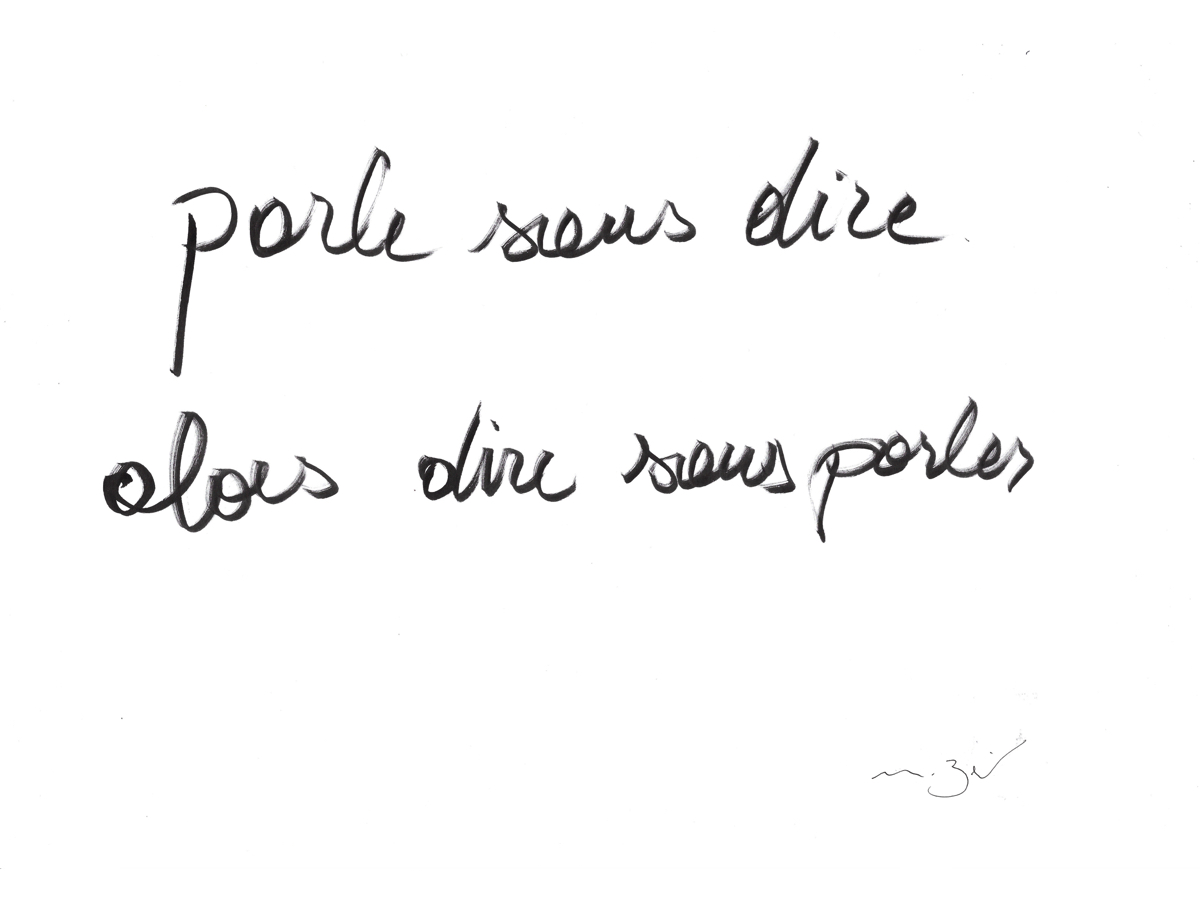 parle sans dire
alors dire sans parler